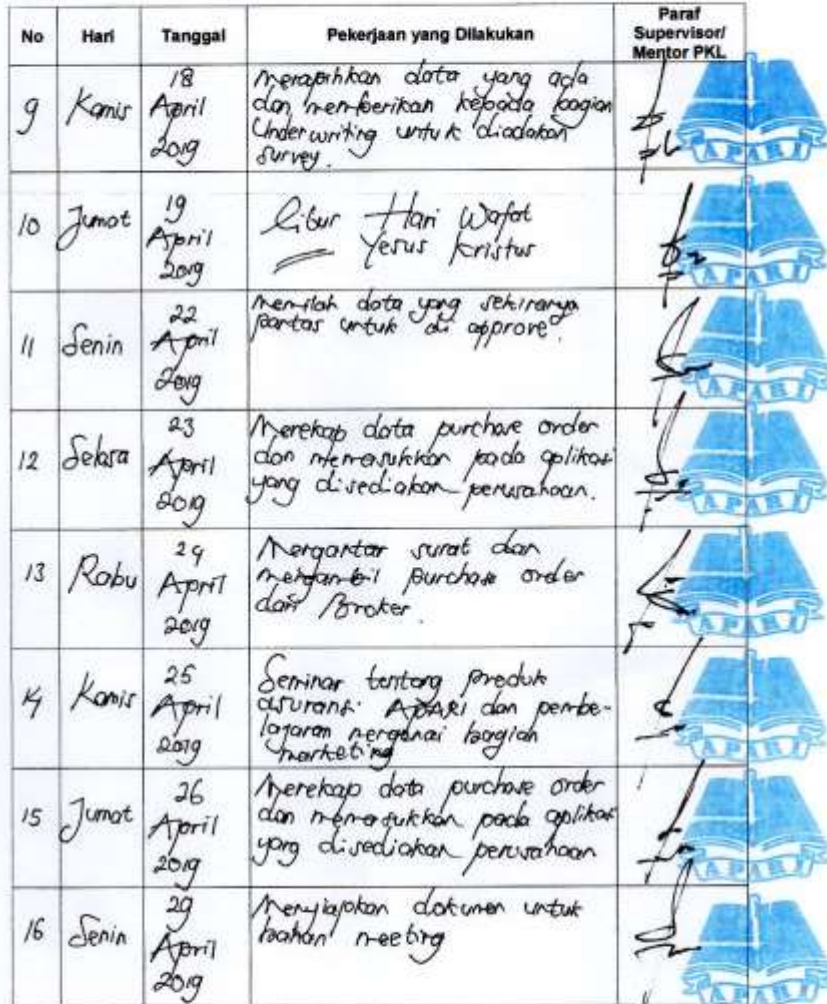 No Hari Tanggal Pekerjaan yang Dilakukan Paraf Supervisor/ Mentor PKL
9 Kamis 18 April 2019
Merapihkan data yang ada
dan memberikan kepada bagian
Underwriting untuk diadakan
survey.
APARI
10 Jumat 19 April 2019
Libur Hari Wafat
Yesus Kristus
APARI
11 Senin 22 April 2019
Memilah data yang sekiranya
pantas untuk di approve.
APARI
12 Selasa 23 April 2019
Merekap data purchase order
dan memasukkan pada aplikasi
yang disediakan perusahaan.
APARI
13 Rabu 24 April 2019
Mengantar surat dan
mengambil purchase order
dari Broker.
APARI
14 Kamis 25 April 2019
Seminar tentang produk
asuransi APARI dan pembe-
lajaran mengenai bagian
marketing
APARI
15 Jumat 26 April 2019
Merekap data purchase order
dan memasukkan pada aplikasi
yang disediakan perusahaan
APARI
16 Senin 29 April 2019
Menyiapkan dokumen untuk
bahan meeting
APARI